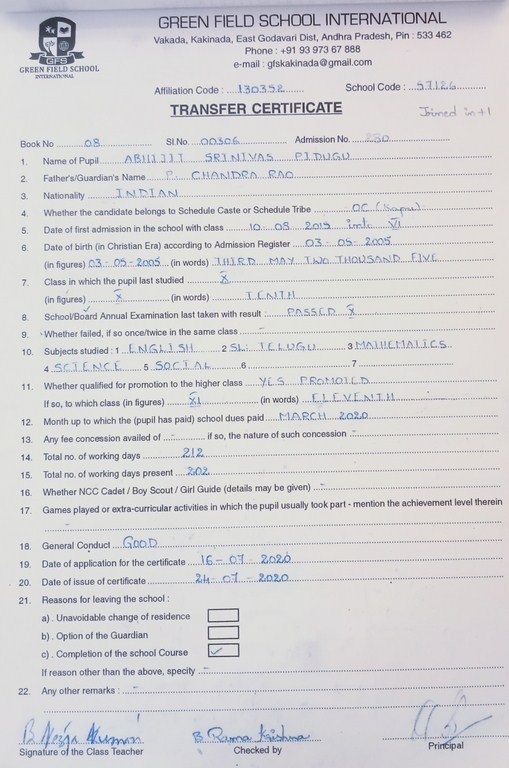 GREEN FIELD SCHOOL INTERNATIONAL
Vakada, Kakinada, East Godavari Dist, Andhra Pradesh, Pin : 533 462
Phone : +91 93 973 67 888
e-mail : gfskakinada@gmail.com
GFS
GREEN FIELD SCHOOL
INTERNATIONAL
Affiliation Code : 130352 School Code : 57126
TRANSFER CERTIFICATE
Joined in +1
Book No 08 Sl.No 00306 Admission No. 250
1. Name of Pupil ABHIJIT SRINIVAS PIDUGU
2. Father's/Guardian's Name P. CHANDRA RAO
3. Nationality INDIAN
4. Whether the candidate belongs to Schedule Caste or Schedule Tribe OC (Kapu)
5. Date of first admission in the school with class 10-08 2015 into VI
6. Date of birth (in Christian Era) according to Admission Register 03-05-2005
(in figures) 03-05-2005 (in words) THIRD MAY TWO THOUSAND FIVE
7. Class in which the pupil last studied X
(in figures) X (in words) TENTH
8. School/Board Annual Examination last taken with result PASSED X
9. Whether failed, if so once/twice in the same class -
10. Subjects studied : 1 ENGLISH 2 SL: TELUGU 3 MATHEMATICS
4 SCIENCE 5 SOCIAL 6 7
11. Whether qualified for promotion to the higher class YES PROMOTED
If so, to which class (in figures) XI (in words) ELEVENTH
12. Month up to which the (pupil has paid) school dues paid MARCH 2020
13. Any fee concession availed of - if so, the nature of such concession -
14. Total no. of working days 212
15. Total no. of working days present 202
16. Whether NCC Cadet / Boy Scout / Girl Guide (details may be given) -
17. Games played or extra-curricular activities in which the pupil usually took part - mention the achievement level therein
-
18. General Conduct GOOD
19. Date of application for the certificate 16-07 2020
20. Date of issue of certificate 24-07-2020
21. Reasons for leaving the school :
a) . Unavoidable change of residence
b) . Option of the Guardian
c) . Completion of the school Course ✓
If reason other than the above, specify -
22. Any other remarks : -
B Rama Krishna
Signature of the Class Teacher Checked by Principal